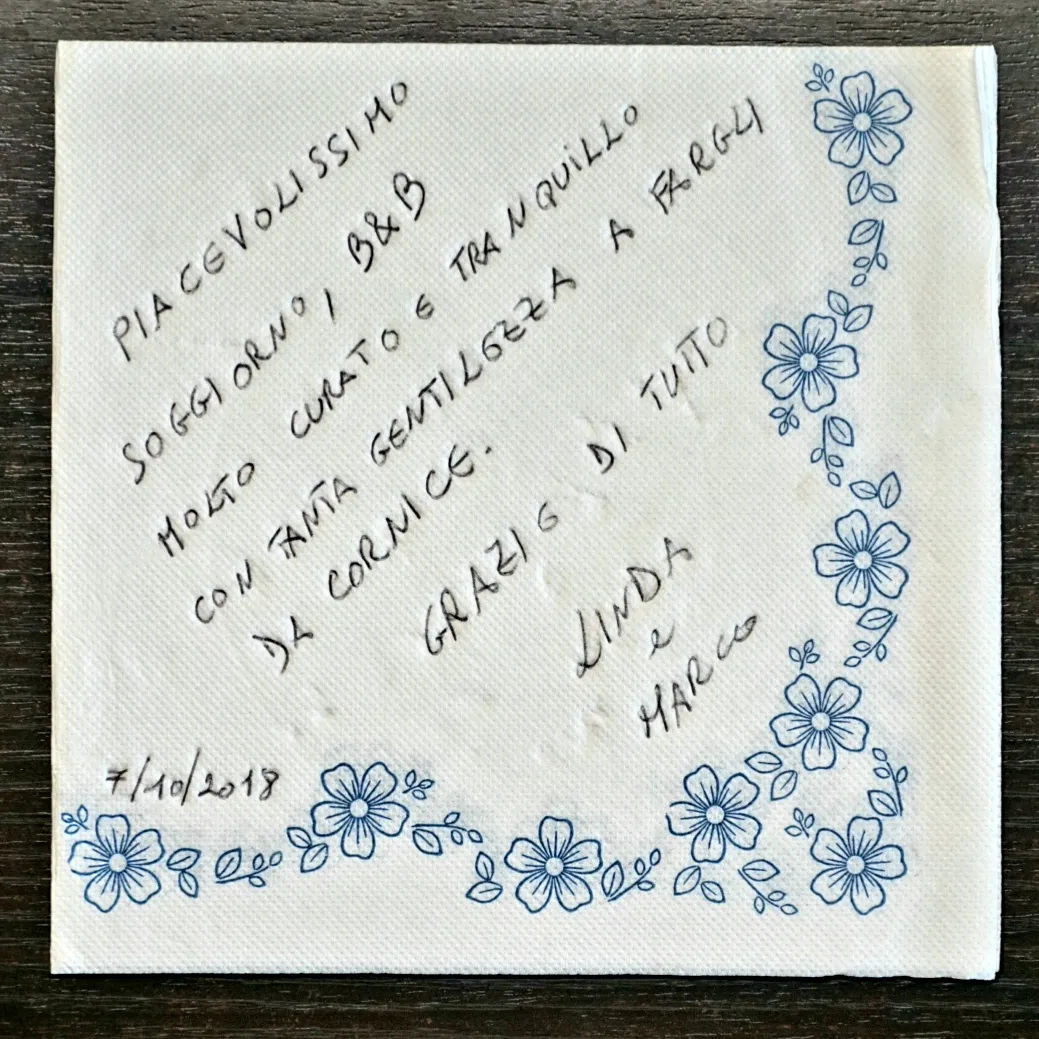 PIACEVOLISSIMO
SOGGIORNO, B&B
MOLTO CURATO E TRANQUILLO
CON TANTA GENTILEZZA A FARGLI
DA CORNICE.
GRAZIE DI TUTTO
LINDA
e
MARCO
7/10/2018